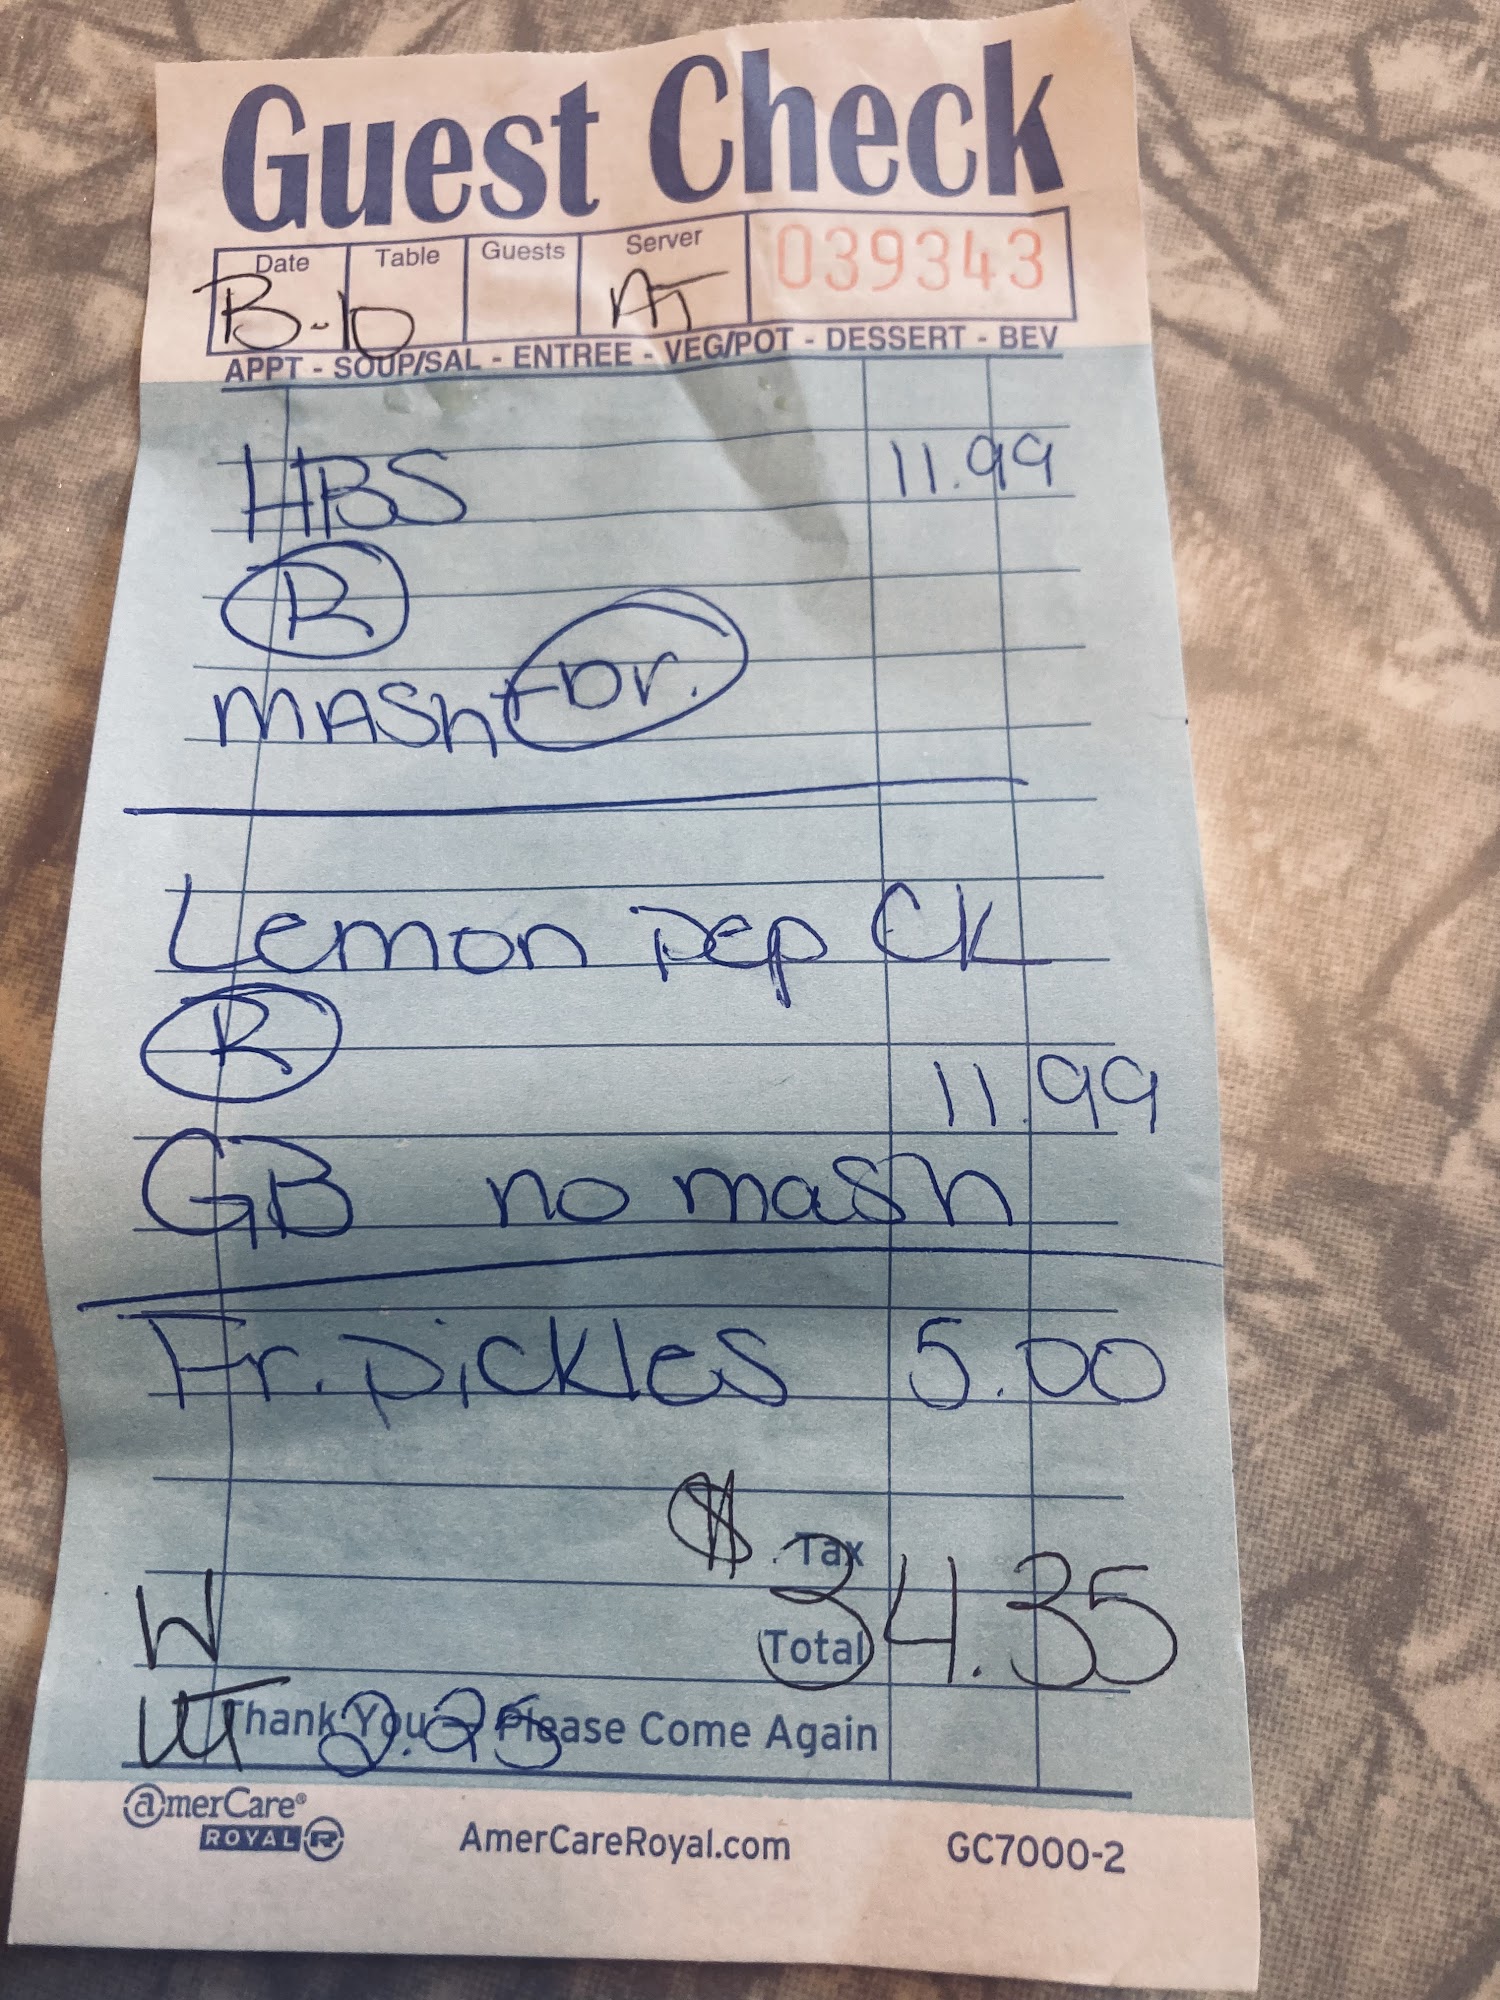 Guest Check
Date Table Guests Server 039343
B-10
APPT - SOUP/SAL - ENTREE - VEG/POT - DESSERT - BEV
HBS 11.99
R
MASh Br.
Lemon Pep CK
R
11.99
GB no mash
Fr. Pickles 5.00
$ 34.35
Tax
Total
W
UT 2.25
Thank You - Please Come Again
amerCare®
ROYAL R
AmerCareRoyal.com
GC7000-2